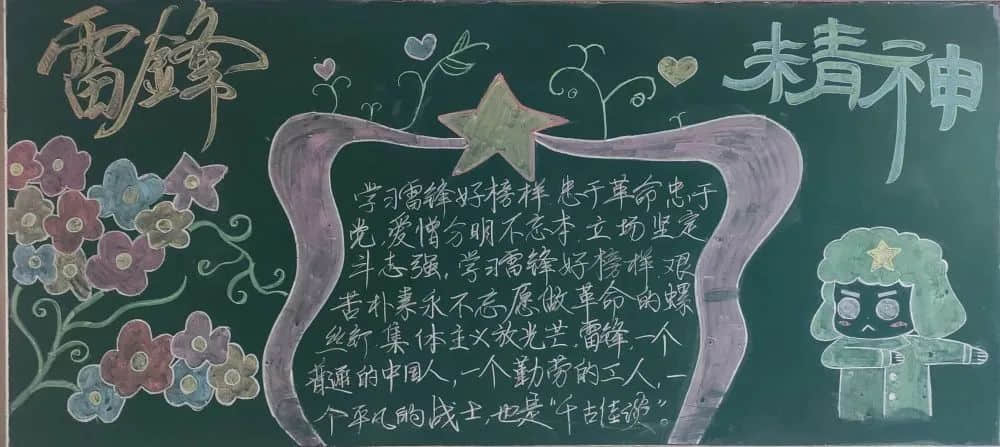 雷鋒
精神
学习雷锋好榜样.忠于革命忠于
党,爱憎分明不忘本,立场坚定
斗志强,学习雷锋好榜样,艰
苦朴素永不忘,愿做革命的螺
丝钉,集体主义放光芒,雷锋,一个
普通的中国人,一个勤劳的工人,一
个平凡的战士,也是“千古佳谈”。